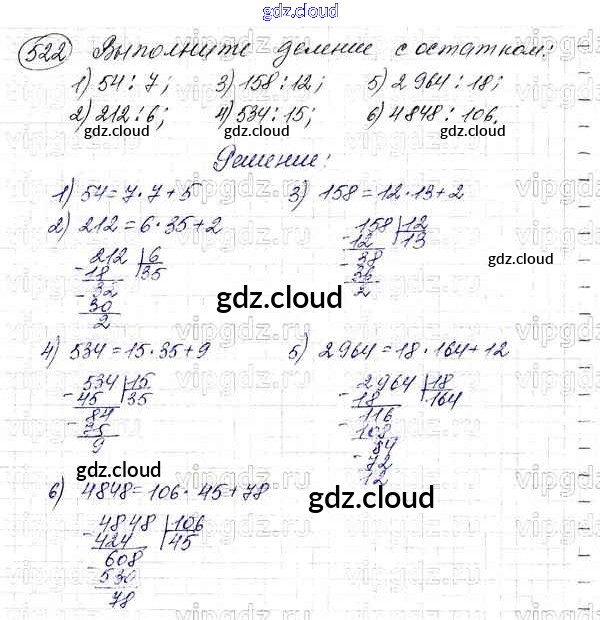 gdz.cloud
522 Выполните деление с остатком:
1) 54 : 7; 3) 158 : 12; 5) 2 964 : 18;
2) 212 : 6; 4) 534 : 15; 6) 4848 : 106.
gdz.cloud gdz.cloud gdz.cloud
Решение:
1) 54 = 7 · 7 + 5 3) 158 = 12 · 13 + 2
2) 212 = 6 · 35 + 2
158 12
- 12 13
- 38
36
2
gdz.cloud
212 6
- 18 35
- 32
30
2
gdz.cloud
4) 534 = 15 · 35 + 9 5) 2 964 = 18 · 164 + 12
534 15
- 45 35
- 84
75
9
gdz.cloud
2964 18
- 18 164
- 116
108
- 84
72
12
6) 4848 = 106 · 45 + 78
gdz.cloud
4848 106
- 424 45
- 608
530
78